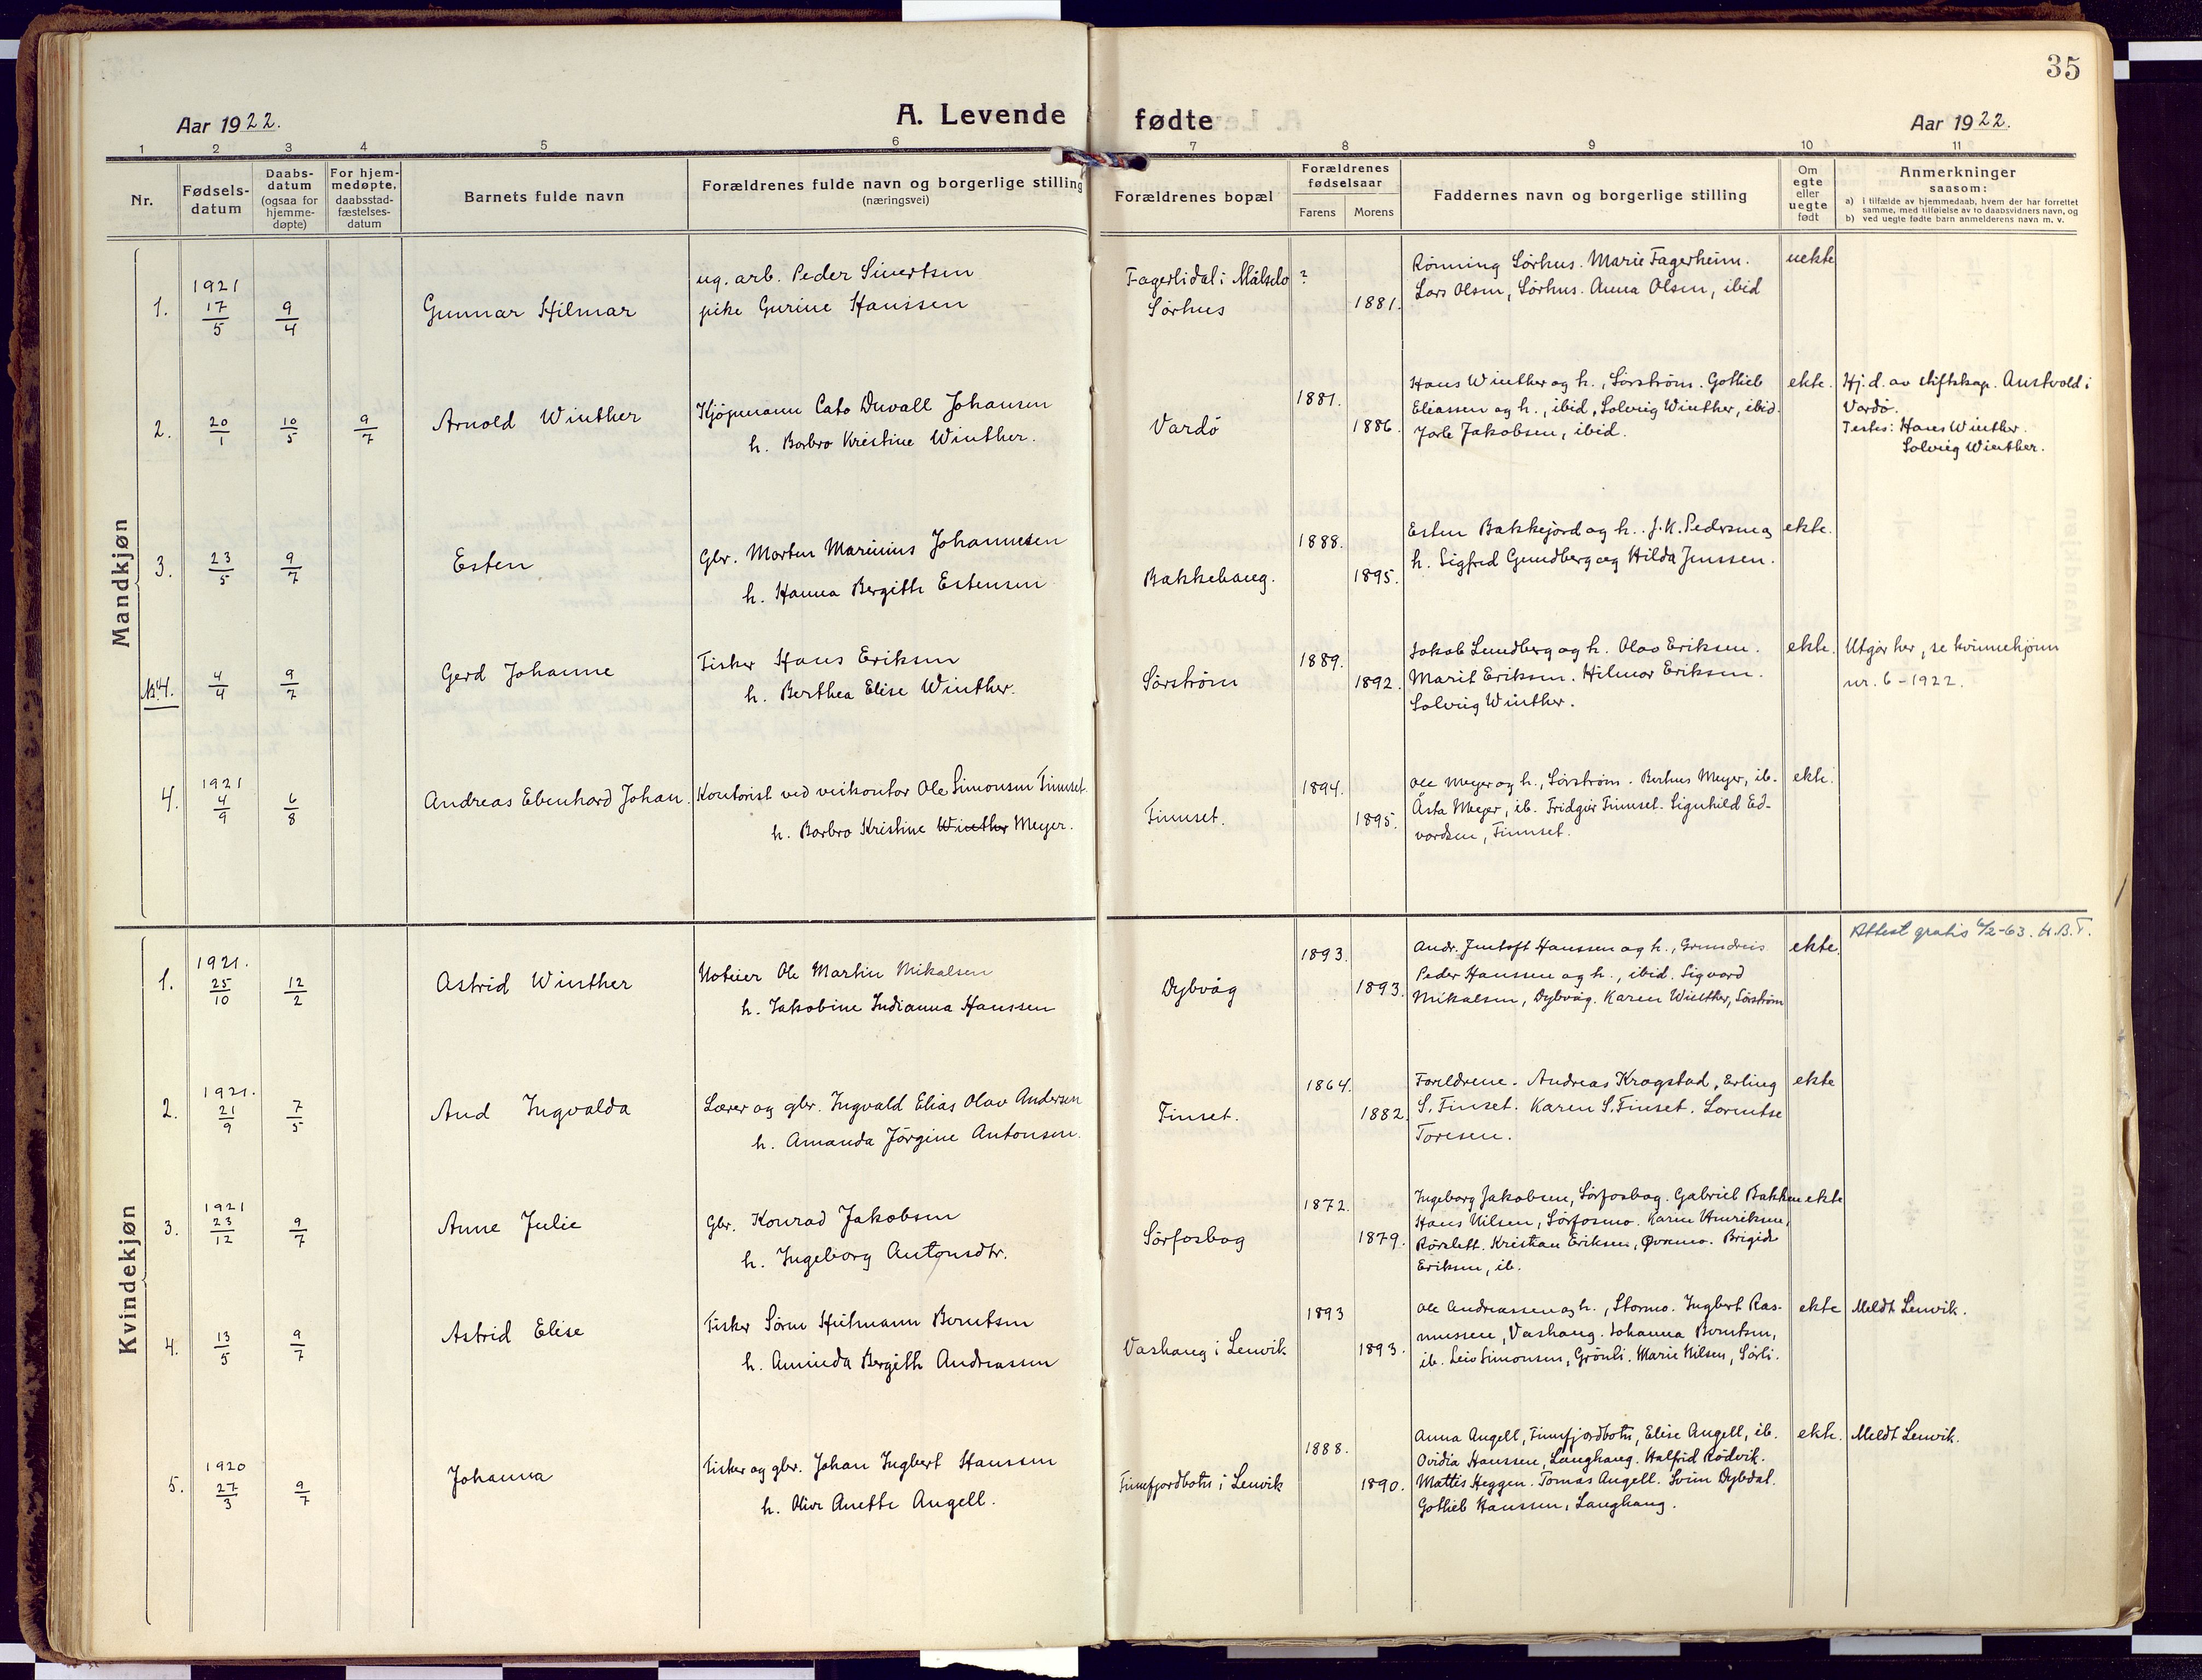 35
Aar 1922.
A. Levende fødte
Aar 1922.
1 2 3 4 5 6 7 8 9 10 11
Nr.
Fødsels-
datum
Daabs-
datum
(ogsaa for
hjemme-
døpte)
For hjem-
medøpte,
daabsstad-
fæstelses-
datum
Barnets fulde navn
Forældrenes fulde navn og borgerlige stilling
(næringsvei)
Forældrenes bopæl
Forældrenes
fødselsaar
Farens Morens
Faddernes navn og borgerlige stilling
Om
egte
eller
uegte
født
Anmerkninger
saasom:
a) i tilfælde av hjemmedaab, hvem der har forrettet
samme, med tilføielse av to daabsvidners navn, og
b) ved uegte fødte barn anmelderens navn m. v.
Mandkjøn
1. 1921 17/5 9/4 Gunnar Hilmar
ug. arb. Peder Sivertsen
pike Gurine Hanssen
Fagerlidal i Målselv
Sørhus
? 1881.
Rønning Sørhus. Marie Fagerheim.
Lars Olsen, Sørhus. Anna Olsen, ibid
uekte
2. 20/1 10/5 9/7 Arnold Winther
Kjøpmann Cato Duvall Johansen
h. Barbro Kristine Winther.
Vardö
1881. 1886.
Hans Winther og h., Sörström. Gotlieb
Eliassen og h., ibid, Solveig Winther, ibid.
Jarle Jakobsen, ibid.
ekte.
Hj.d. av stiftskap. Austvold i
Vardö.
Testes: Hans Winther.
Solveig Winther.
3. 23/5 9/7 Esten
Gbr. Morten Marinius Johannesen
h. Hanna Bergith Estensen
Bakkehaug.
1888. 1895.
Esten Bakkejord og h. J.K. Pedersen og
h. Sigfred Gundberg og Hilda Jenssen.
ekte.
4. 4/4 9/7 Gerd Johanne
Fisker Hans Eriksen
h. Berthea Elise Winther.
Sörström
1889. 1892.
Jakob Lundberg og h. Olav Eriksen.
Marit Eriksen. Hilmar Eriksen.
Solveig Winther.
ekte.
Utgår her, se kvinnekjönn
nr. 6 - 1922.
4. 1921 4/9 6/8 Andreas Ebenhard Johan.
Kontorist ved veikontor Ole Simonsen Finnset.
h. Barbro Kristine Winther Meyer.
Finnset.
1894. 1895.
Ole Meyer og h., Sörström. Berhus Meyer, ib.
Åsta Meyer, ib. Fridgeir Finnset. Signhild Ed-
vardsen, Finnset.
ekte.
Kvindekjøn
1. 1921. 25/10 12/2 Astrid Winther
Noteier Ole Martin Mikalsen
h. Jakobine Indianna Hanssen
Dybvåg
1893. 1893.
Andr. Jentoft Hanssen og h., Grundreis
Peder Hanssen og h., ibid. Sigvard
Mikalsen, Dybvåg. Karen Winther, Sörström
ekte.
Attest gratis 6/2-63. H.B.T.
2. 1921. 21/9 7/5 Aud Ingvalda
Lærer og gbr. Ingvald Elias Olav Andersen
h. Amanda Jörgine Antonsen.
Finset.
1864. 1882.
Foreldrene. Andreas Krogstad, Erling
S. Finset. Karen S. Finset. Lorentse
Toresen.
ekte
3. 1921 23/12 9/7 Anne Julie
Gbr. Konrad Jakobsen
h. Ingeborg Antonsdtr.
Sörfosbog
1872. 1879.
Ingeborg Jakobsen, Sörfosbog. Gabriel Bakken
Hans Nilsen, Sörfosmo. Karen Henriksen,
Rörslett. Kristian Eriksen, Övrmo. Brigide
Eriksen, ib.
ekte
4. 13/5 9/7 Astrid Elise
Fisker Sören Heitmann Berntsen
h. Aminda Bergith Andreassen
Vashaug i Lenvik
1893 1893.
Ole Andreassen og h., Stormo. Ingbert Ras-
mussen, Vashaug. Johanna Berntsen,
ib. Leiv Simonsen, Grönli. Marie Nilsen, Sörli.
ekte
Meldt Lenvik.
5. 1920 27/3 9/7 Johanna
Fisker og gbr. Johan Ingbert Hanssen
h. Olive Anette Angell.
Finnfjordbotn i Lenvik
1888. 1890.
Anna Angell, Finnfjordbotn, Elise Angell, ib.
Ovidia Hanssen, Langhaug. Halfrid Rödvik.
Mattis Heggen. Tomas Angell. Svein Dybdal.
Gotlieb Hanssen, Langhaug.
ekte.
Meldt Lenvik.